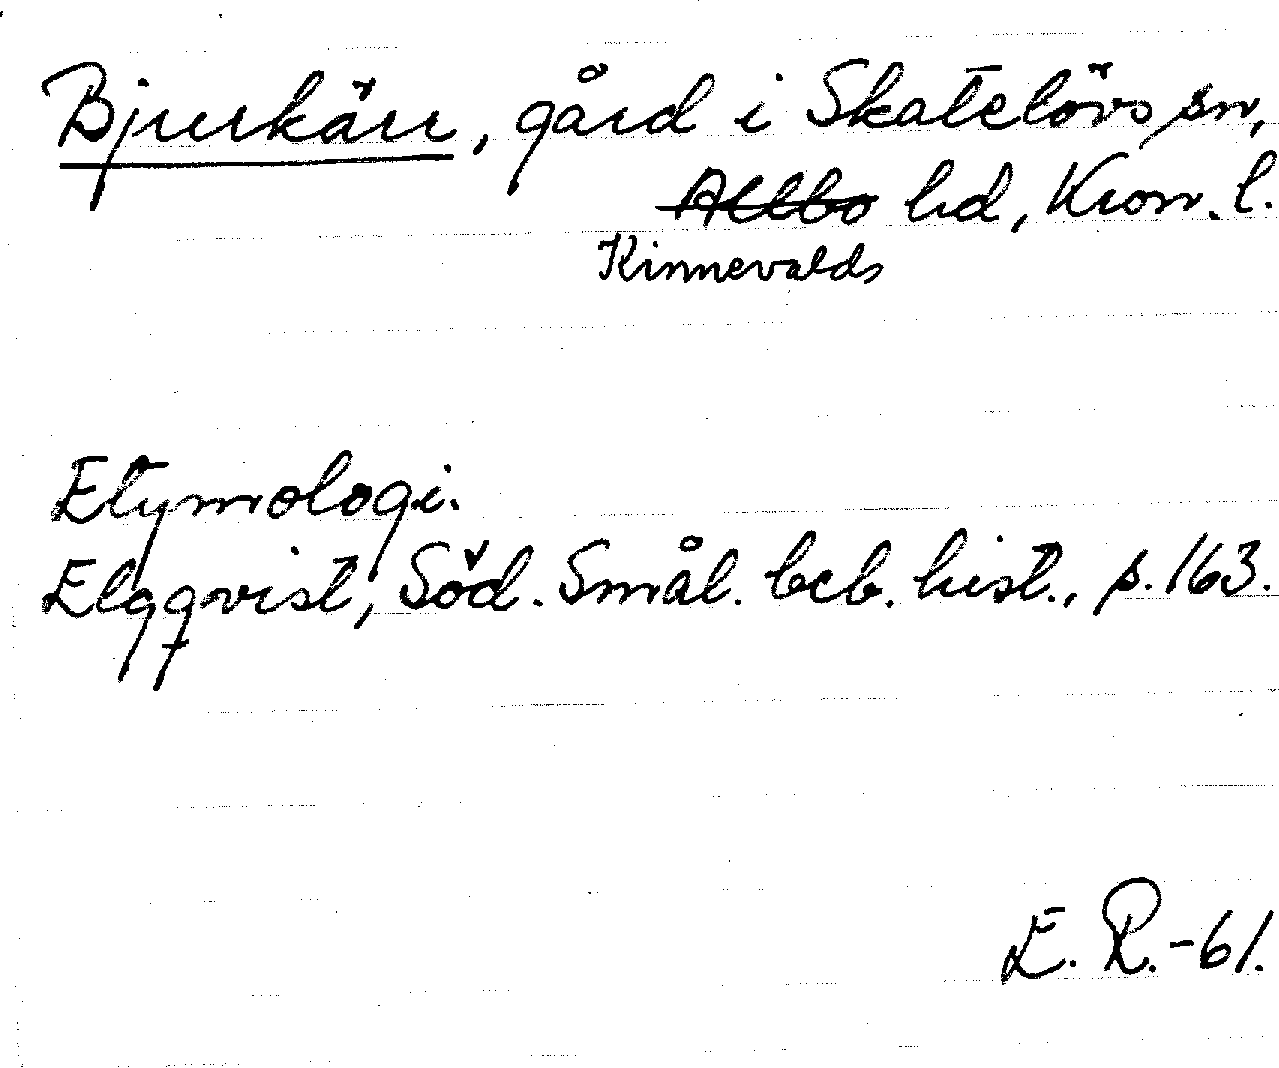 Bjurkärr, gård i Skatelövs sn,
Allbo hd, Kron. l.
Kinnevalds
Etymologi.
Elgqvist, Söd. Smål. beb. hist., p. 163.
E. R. -61.